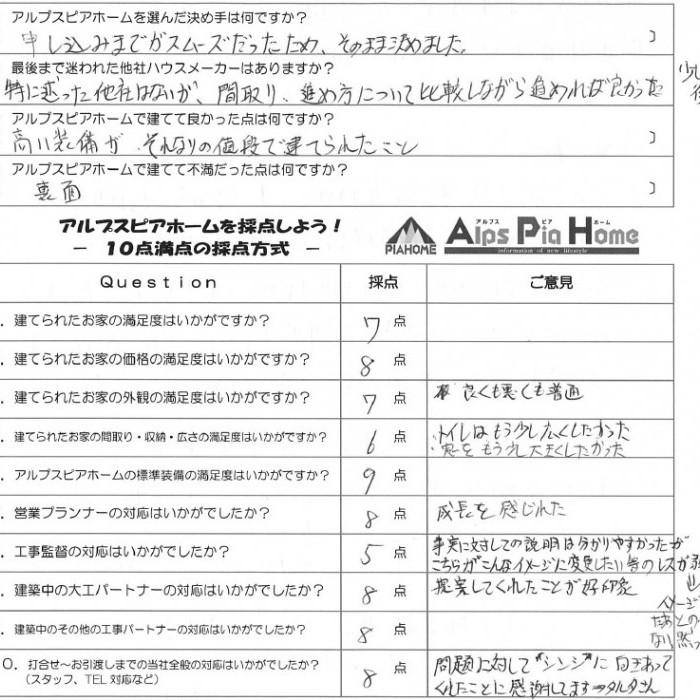 アルプスピアホームを選んだ決め手は何ですか？
申し込みまでがスムーズだったため、そのまま決めました。
〕
最後まで迷われた他社ハウスメーカーはありますか？
特に迷った他社はないが、間取り、進め方について比較しながら進めれば良かった
少し
アルプスピアホームで建てて良かった点は何ですか？
高い装備が、それなりの値段で建てられたこと
〕
アルプスピアホームで建てて不満だった点は何ですか？
裏面
〕
アルプスピアホームを採点しよう！
－ １０点満点の採点方式 －
PIAHOME
アルプス ピア ホーム
Alps Pia Home
information of new lifestyle
Question 採点 ご意見
. 建てられたお家の満足度はいかがですか？ 7 点
. 建てられたお家の価格の満足度はいかがですか？ 8 点
. 建てられたお家の外観の満足度はいかがですか？ 7 点 良くも悪くも普通
. 建てられたお家の間取り・収納・広さの満足度はいかがですか？ 6 点 ・トイレはもう少し広くしたかった
・窓をもう少し大きくしたかった
. アルプスピアホームの標準装備の満足度はいかがですか？ 9 点
. 営業プランナーの対応はいかがでしたか？ 8 点 成長を感じれた
. 工事監督の対応はいかがでしたか？ 5 点 事実に対しての説明は分かりやすかったが
こちらがこんなイメージに変更したい等のレスが
. 建築中の大工パートナーの対応はいかがでしたか？ 8 点 提案してくれたことが好印象
イメージ
. 建築中のその他の工事パートナーの対応はいかがですか？ 8 点
たあとの
ない
0. 打合せ～お引渡しまでの当社全般の対応はいかがでしたか？
（スタッフ、TEL 対応など） 8 点 問題に対して"シンジ"に向きあって
くれたことに感謝します